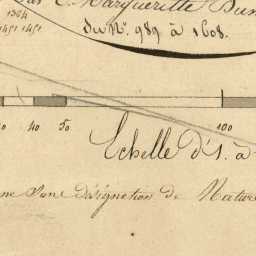 Margueritte
du N°. 989 à 1608.
1451 1451
40 50 100
Echelle d'1. à
une Désignation de Nature